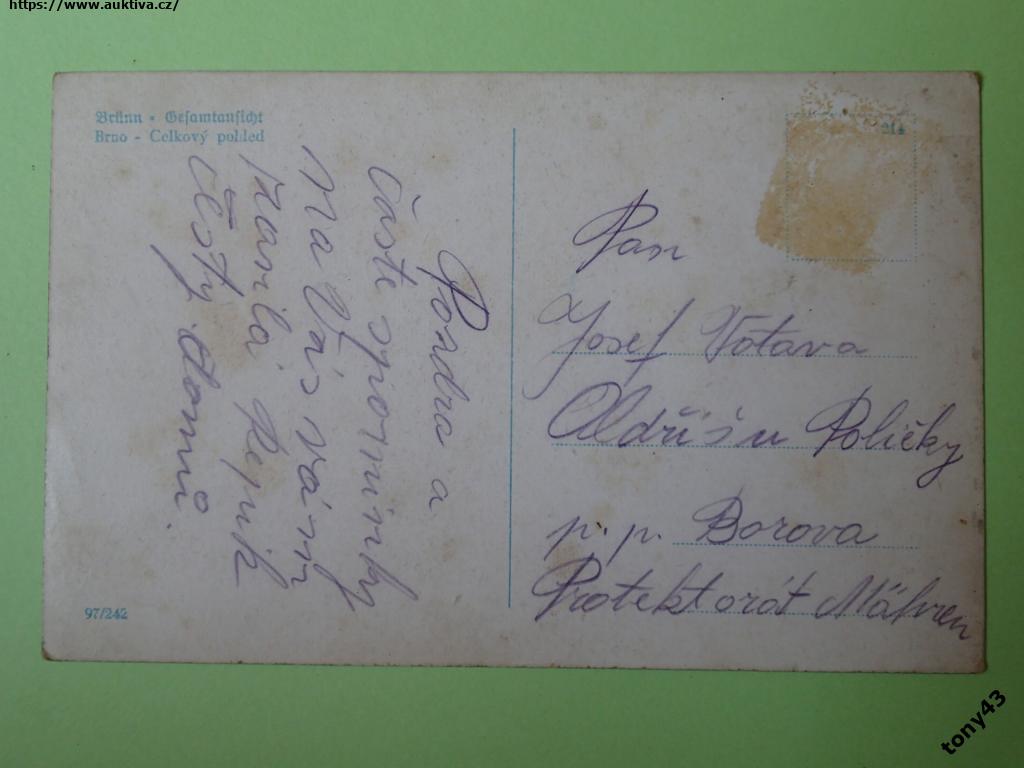 https://www.auktiva.cz/
Brünn • Gesamtansicht
Brno - Celkový pohled
Pozdra a
časte spomínky
Na Vás
Čisty domů.
97/242
214
Pan
Josef Votava
Oldřiš u Poličky
p. p. Borova
Protektorát Mähren
tony43